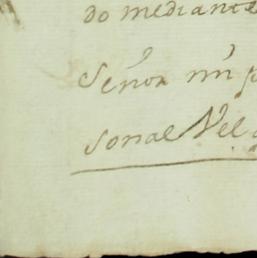 do mediante
Señor mi p
sonal Vel